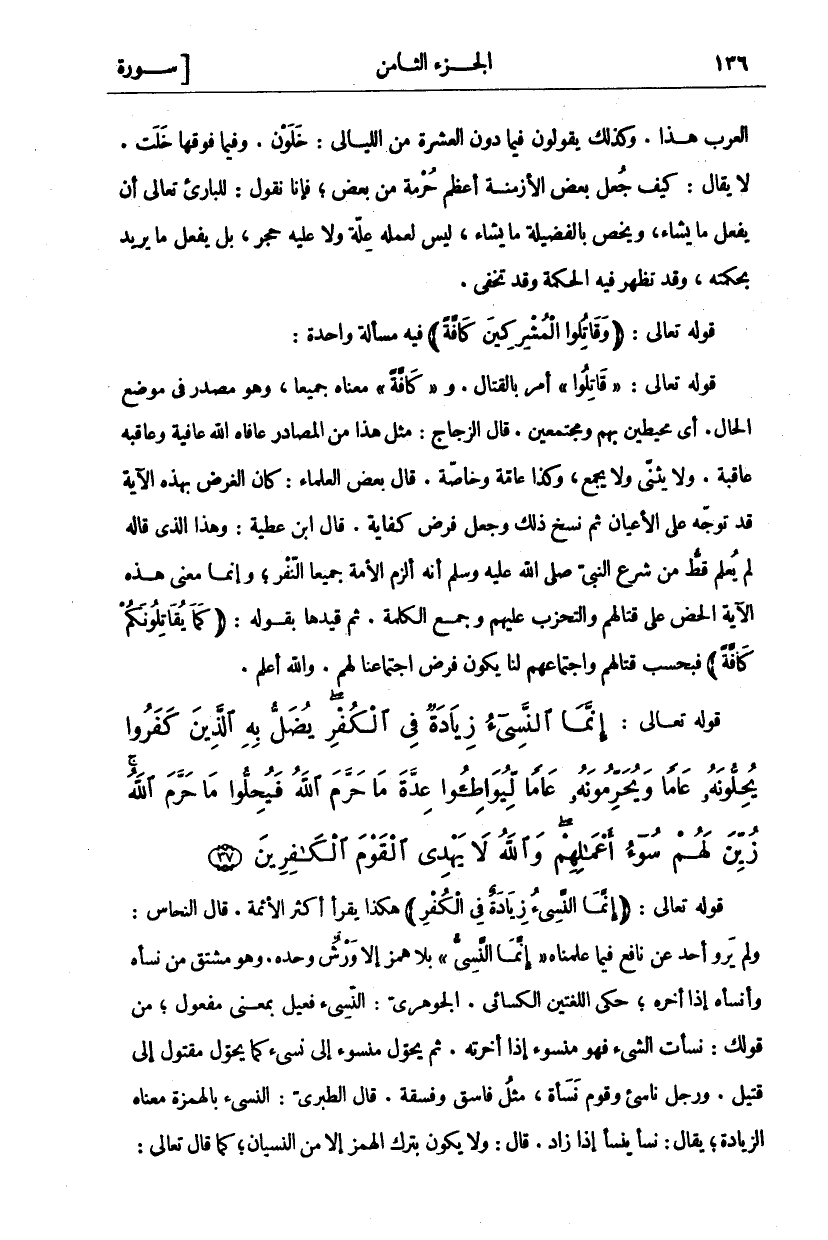 ١٣٦ الجـزء الثـامن [ سـورة
العرب هـذا . وكذلك يقولون فيما دون العشرة من الليالى : خَلَوْن . وفيما فوقها خَلَت .
لا يقال : كيف جُعل بعض الأزمنـة أعظم حُرْمة من بعض ؛ فإنا نقول : للبارئ تعالى أن
يفعل ما يشاء، ويخص بالفضيلة ما يشاء ، ليس لعمله عِلّة ولا عليه حجر ، بل يفعل ما يريد
بحكمته ، وقد تظهر فيه الحكمة وقد تخفى .
قوله تعالى : (وَقَاتِلُوا الْمُشْرِكِينَ كَافَّةً) فيه مسألة واحدة :
قوله تعالى : « قَاتِلُوا » أمر بالقتال . و « كَافَّةً » معناه جميعا ، وهو مصدر فى موضع
الحال. أى محيطين بهم ومجتمعين . قال الزجاج : مثل هذا من المصادر عافاه الله عافية وعاقبه
عاقبة . ولا يثنّى ولا يجمع ، وكذا عامّة وخاصّة . قال بعض العلماء : كان الغرض بهذه الآية
قد توجّه على الأعيان ثم نسخ ذلك وجعل فرض كفاية . قال ابن عطية : وهذا الذى قاله
لم يُعلم قطُّ من شرع النبىّ صلى الله عليه وسلم أنه ألزم الأمة جميعا النّفْر ؛ وإنمـا معنى هـذه
الآية الحض على قتالهم والتحزب عليهم وجمـع الكلمة . ثم قيدها بقـوله : (كَمَا يُقَاتِلُونَكُمْ
كَافَّةً) فبحسب قتالهم واجتماعهم لنا يكون فرض اجتماعنا لهم . والله أعلم .
قوله تعـالى : إِنَّمَا ٱلنَّسِىٓءُ زِيَادَةٌ فِى ٱلْكُفْرِ ۖ يُضَلُّ بِهِ ٱلَّذِينَ كَفَرُوا
يُحِلُّونَهُۥ عَامًا وَيُحَرِّمُونَهُۥ عَامًا لِّيُوَاطِـُٔوا عِدَّةَ مَا حَرَّمَ ٱللَّهُ فَيُحِلُّوا مَا حَرَّمَ ٱللَّهُ ۚ
زُيِّنَ لَهُمْ سُوٓءُ أَعْمَٰلِهِمْ ۗ وَٱللَّهُ لَا يَهْدِى ٱلْقَوْمَ ٱلْكَٰفِرِينَ ٣٧
قوله تعالى : (إِنَّمَا النَّسِىءُ زِيَادَةٌ فِى الْكُفْرِ) هكذا يقرأ أكثر الأئمة . قال النحاس :
ولم يَرو أحد عن نافع فيما علمناه« إِنَّمَا النَّسِىُّ » بلا همز إلا وَرْشٌ وحده. وهو مشتق من نسأه
وأنسأه إذا أخره ؛ حكى اللغتين الكسائى . الجوهرىّ : النّسِىء فعيل بمعنى مفعول ؛ من
قولك : نسأت الشىء فهو منسوء إذا أخرته . ثم يحوّل منسوء إلى نسىء كما يحوّل مقتول إلى
قتيل . ورجل ناسئ وقوم نَسَأة ، مثلُ فاسق وفسقة . قال الطبرىّ : النسىء بالهمزة معناه
الزيادة ؛ يقال : نسأ ينسأ إذا زاد . قال : ولا يكون بترك الهمز إلا من النسيان؛ كما قال تعالى :